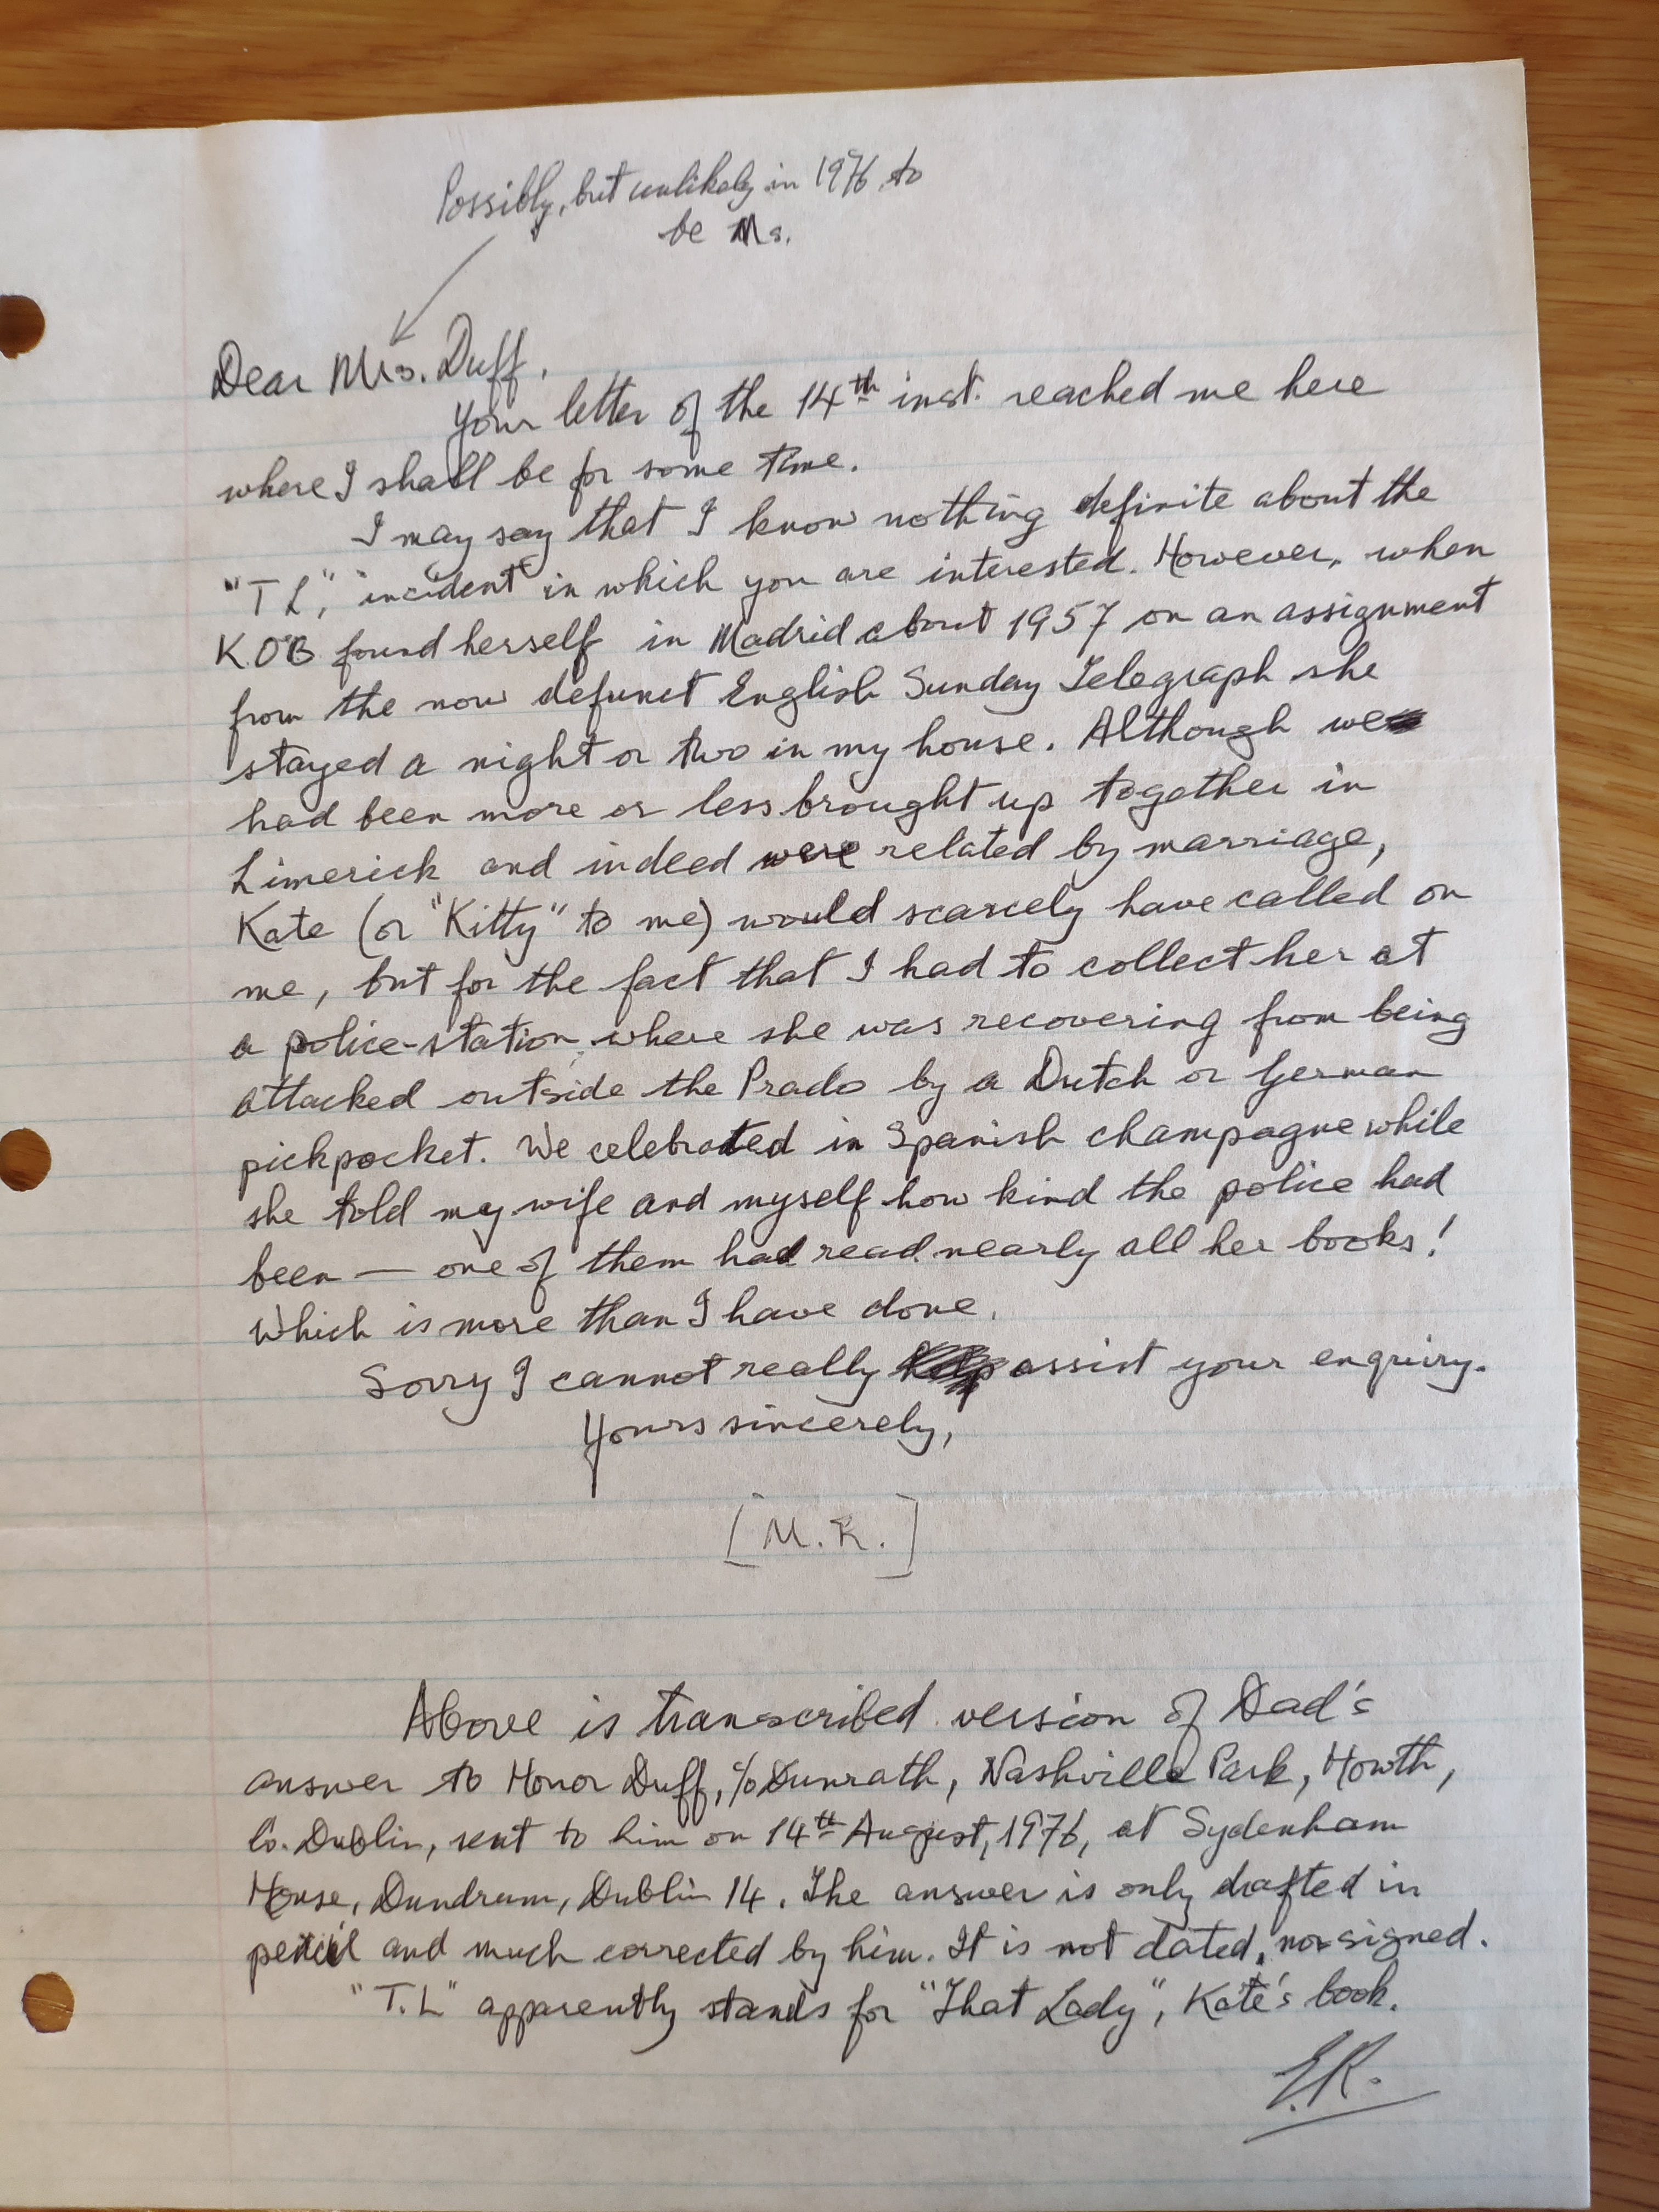 Possibly, but unlikely in 1976 to
be Ms.
Dear Mrs. Duff,
Your letter of the 14th inst. reached me here
where I shall be for some time.
I may say that I know nothing definite about the
"T L", incident in which you are interested. However, when
K.O'B found herself in Madrid about 1957 on an assignment
from the now defunct English Sunday Telegraph she
stayed a night or two in my house. Although we
had been more or less brought up together in
Limerick and indeed were related by marriage,
Kate (or "Kitty" to me) would scarcely have called on
me, but for the fact that I had to collect her at
a police-station where she was recovering from being
attacked outside the Prado by a Dutch or German
pickpocket. We celebrated in Spanish champagne while
she told my wife and myself how kind the police had
been — one of them had read nearly all her books!
Which is more than I have done.
Sorry I cannot really assist your enquiry.
Yours sincerely,
[M.R.]
Above is transcribed version of Dad's
answer to Honor Duff, c/o Dunrath, Nashville Park, Howth,
Co. Dublin, sent to him on 14th August, 1976, at Sydenham
House, Dundrum, Dublin 14. The answer is only drafted in
pencil and much corrected by him. It is not dated, nor signed.
"T.L" apparently stands for "That Lady", Kate's book.
E.R.